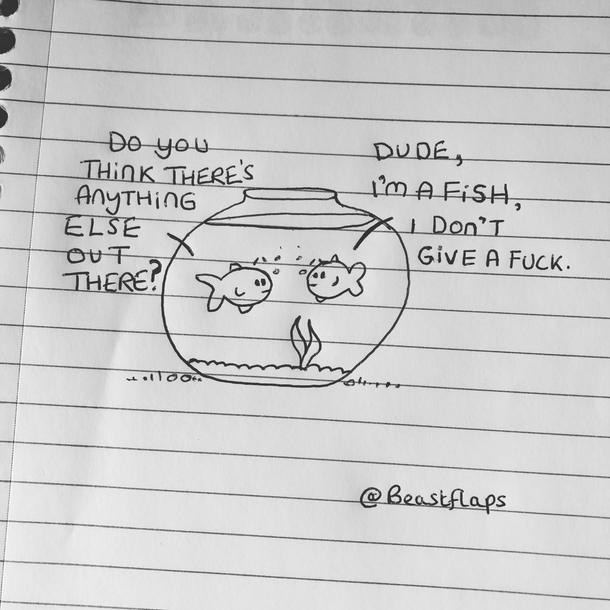 Do you
THINK THERE'S
ANYTHING
ELSE
OUT
THERE?
DUDE,
I'M A FISH,
I DON'T
GIVE A FUCK.
@Beastflaps